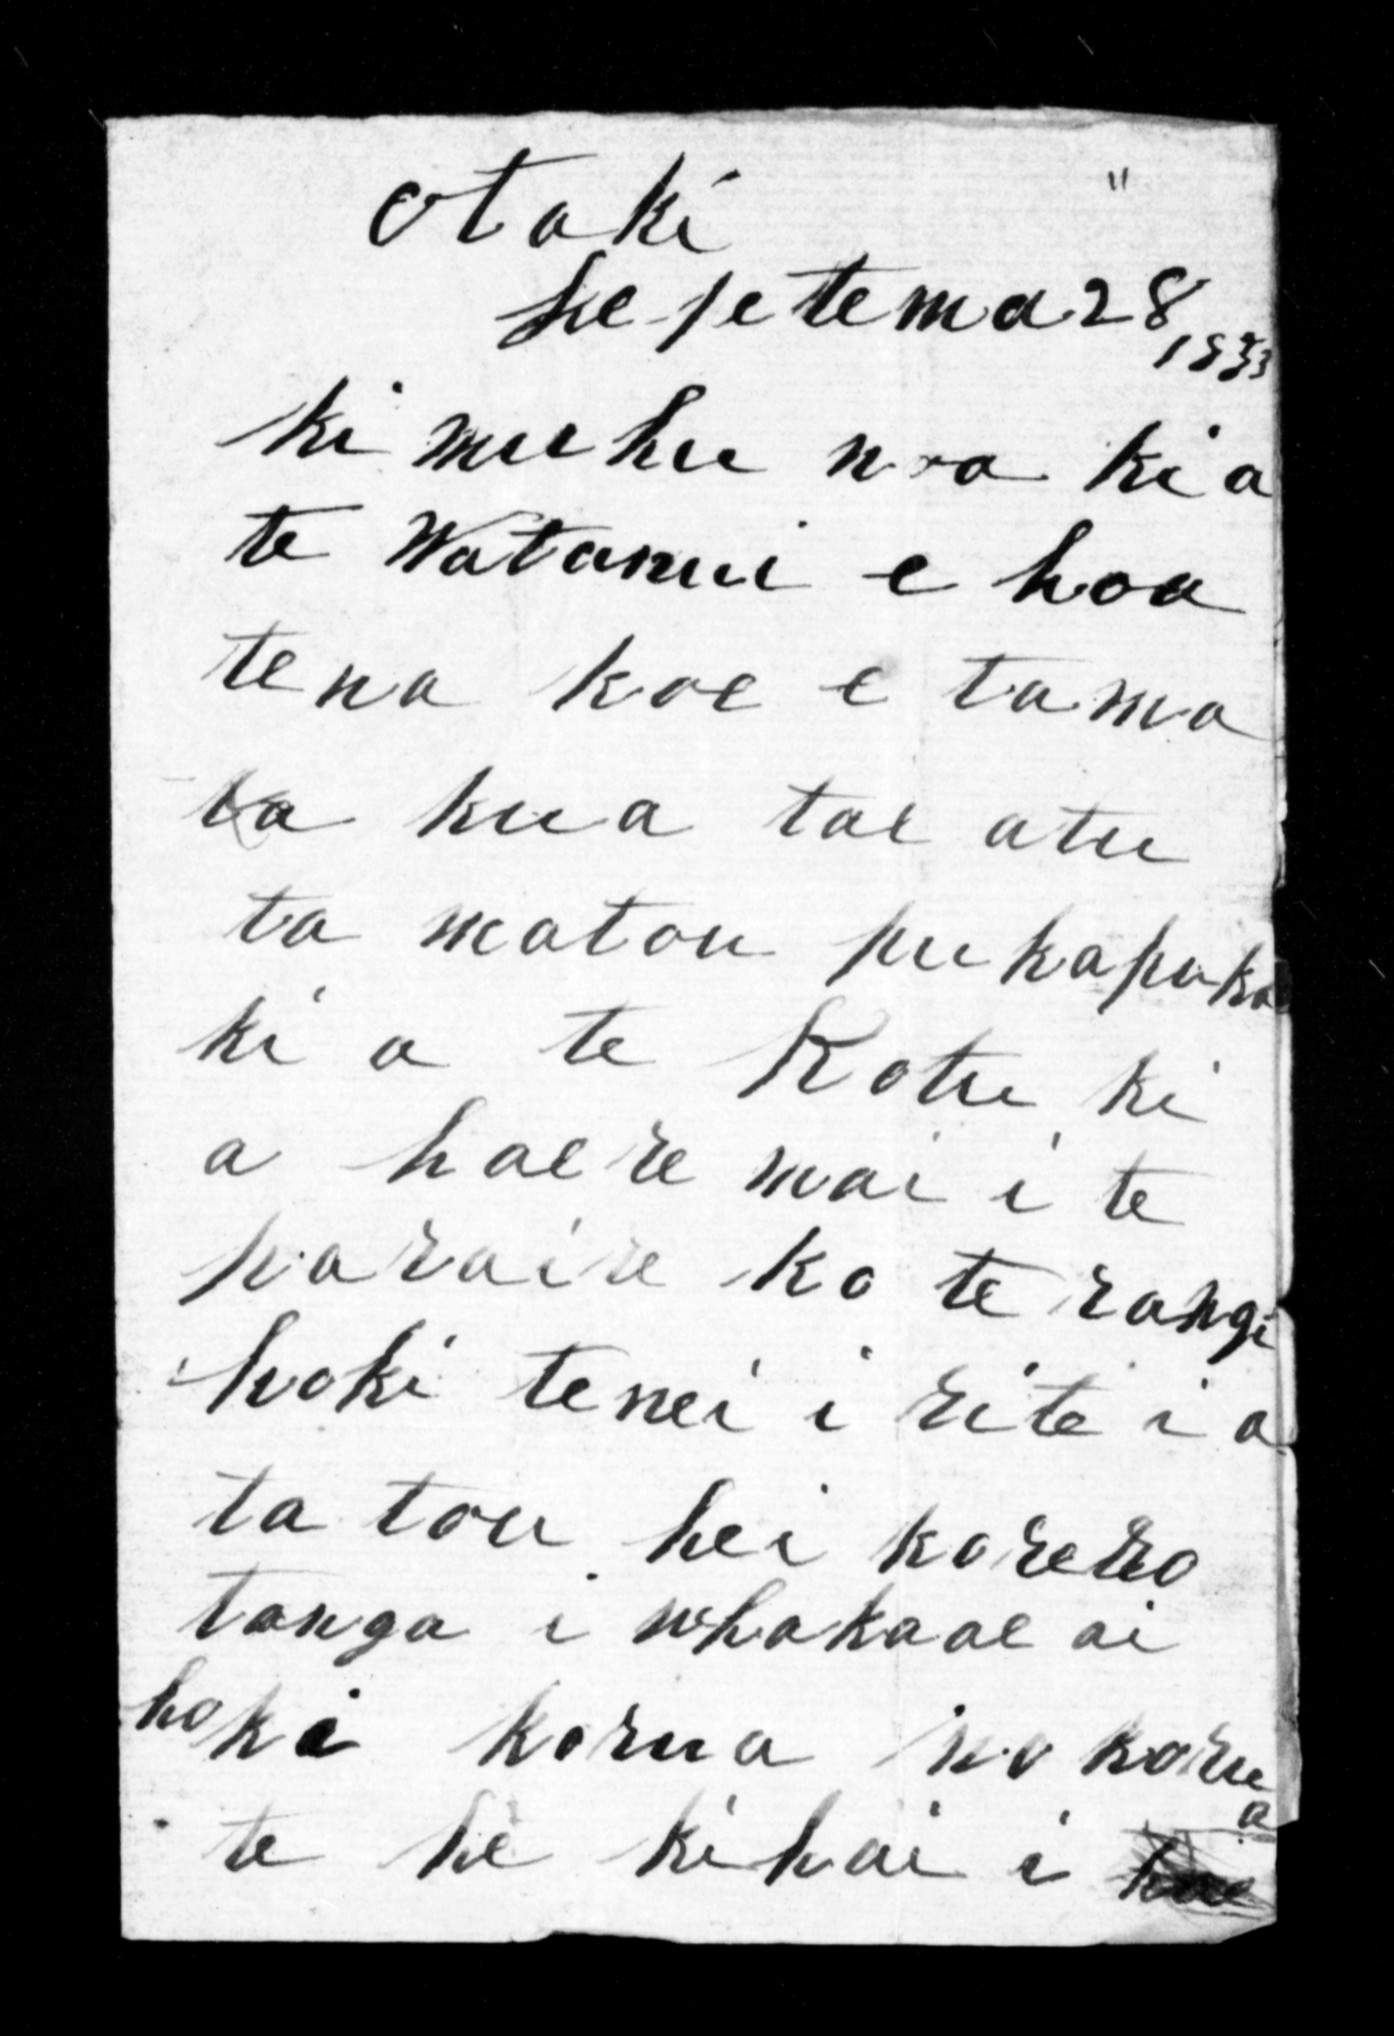 Otaki "
hepetema 28
1853
ki muhunoa kia
te Watanui e hoa
tena koe e tama
ta kua tae atu
ta matou pukapuka
ki a te Kotu ki
a haere mai i te
paraire ko te rangi
hoki tenei i rite i a
ta tou hei korero
tanga i whakaae ai
hoki korua no korua
te he kihai i